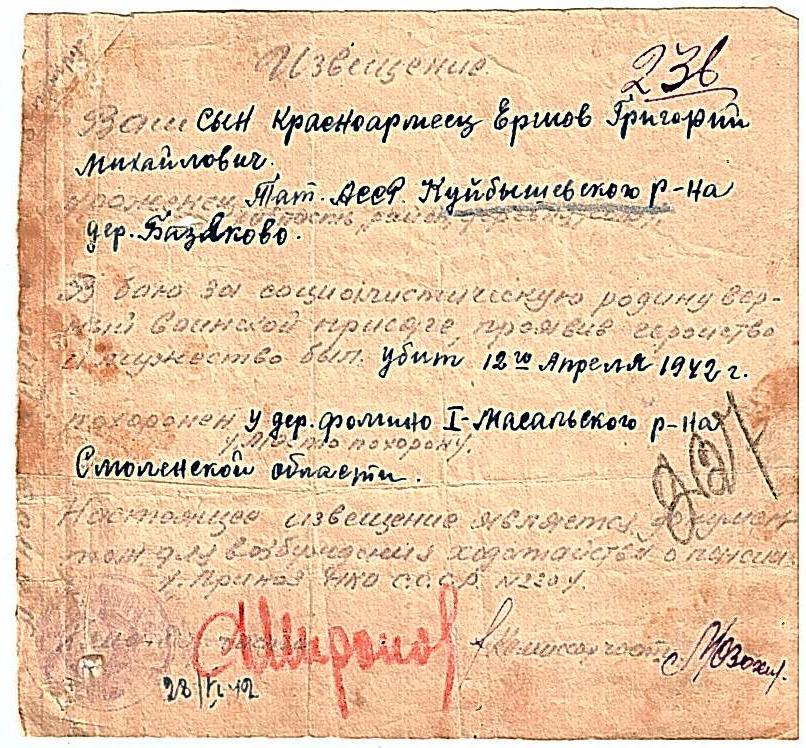 Извещение
236
Ваш сын красноармеец Ершов Григорий
Михайлович.
уроженец Тат. АССР. Куйбышевского р-на
дер. Базяково.
В бою за социалистическую родину вер-
ный воинской присяге, проявив геройство
и мужество был убит 12го Апреля 1942 г.
похоронен у дер. Фомино I-Масальского р-на
/место похорон/.
Смоленской области.
227
Настоящее извещение является докумен
том для возбуждения ходатайств о пенсии
/Приказ НКО СССР №220/.
Миронов
Комиссар части
28/VI-42